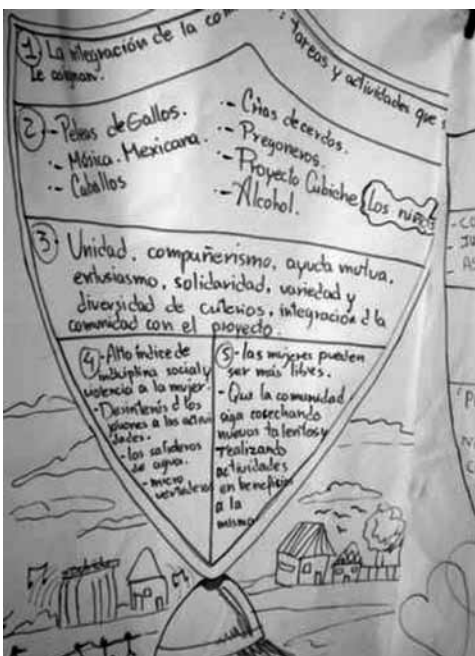 1) La integración de la com : tareas y actividades que s
Le asignan.
2) - Peleas de Gallos.
- Música. Mexicana.
- Caballos
- Crias de cerdos.
- Pregoneros.
- Proyecto Cubiche Los niños
- Alcohol.
3) Unidad, compuñerismo, ayuda mutua,
entusiasmo, solidaridad, variedad y
diversidad de criterios, integración d la
comunidad con el proyecto.
4) - Alto índice de
indiciplina social y
violencia a la mujer.
- Desinterés d los
jóvenes a las activi
dades.
- los salideros
de agua.
- micro
vertederos
5) - las mujeres puedan
ser más libres.
- Que la comunidad
siga cosechando
nuevos talentos y
realizando
actividades
en beneficio
a la
misma